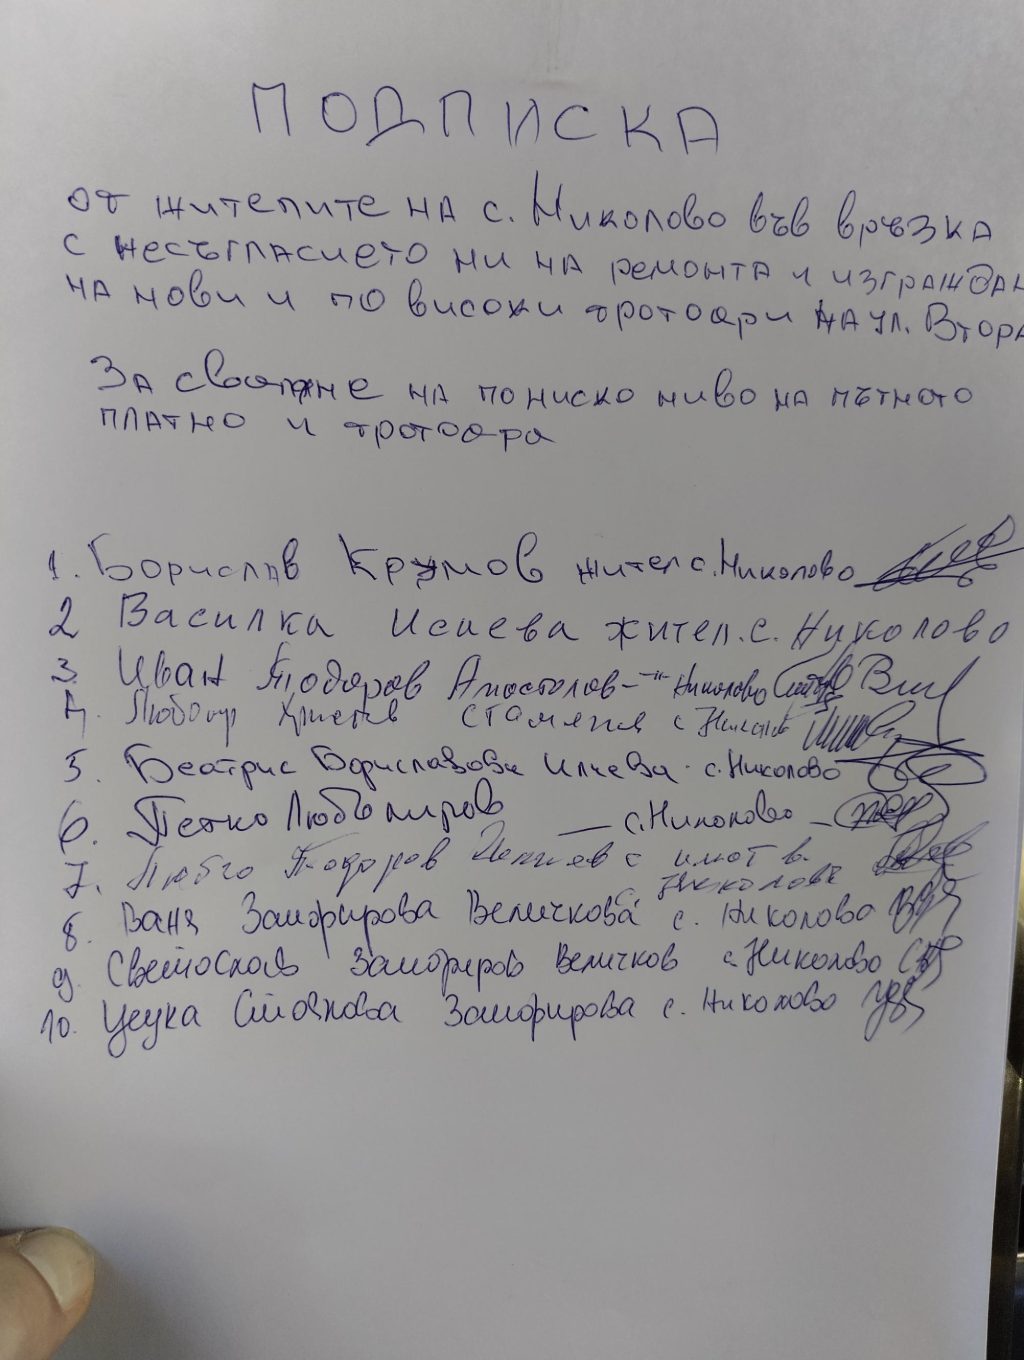 ПОДПИСКА
от жителите на с. Николово във връзка
с несъгласието ни на ремонта и изграждан
на нови и по високи тротоари на ул. Втора
За сваляне на по ниско ниво на пътното
платно и тротоара
1. Борислав Крумов жител с. Николово
2 Василка Исаева жител. с. Николово
3. Иван Тодоров Апостолов -"- Николово
4. Любомир Христов с
5. Беатрис Бориславова Илиева. с. Николово
6. Петко Любомиров — с. Николово –
7. Тодоров с имот в.
Николово
8. Ваня Замфирова Величкова с. Николово
9. Светослав Замфиров Величков с. Николово
10. Цецка Стоянова Замфирова с. Николово